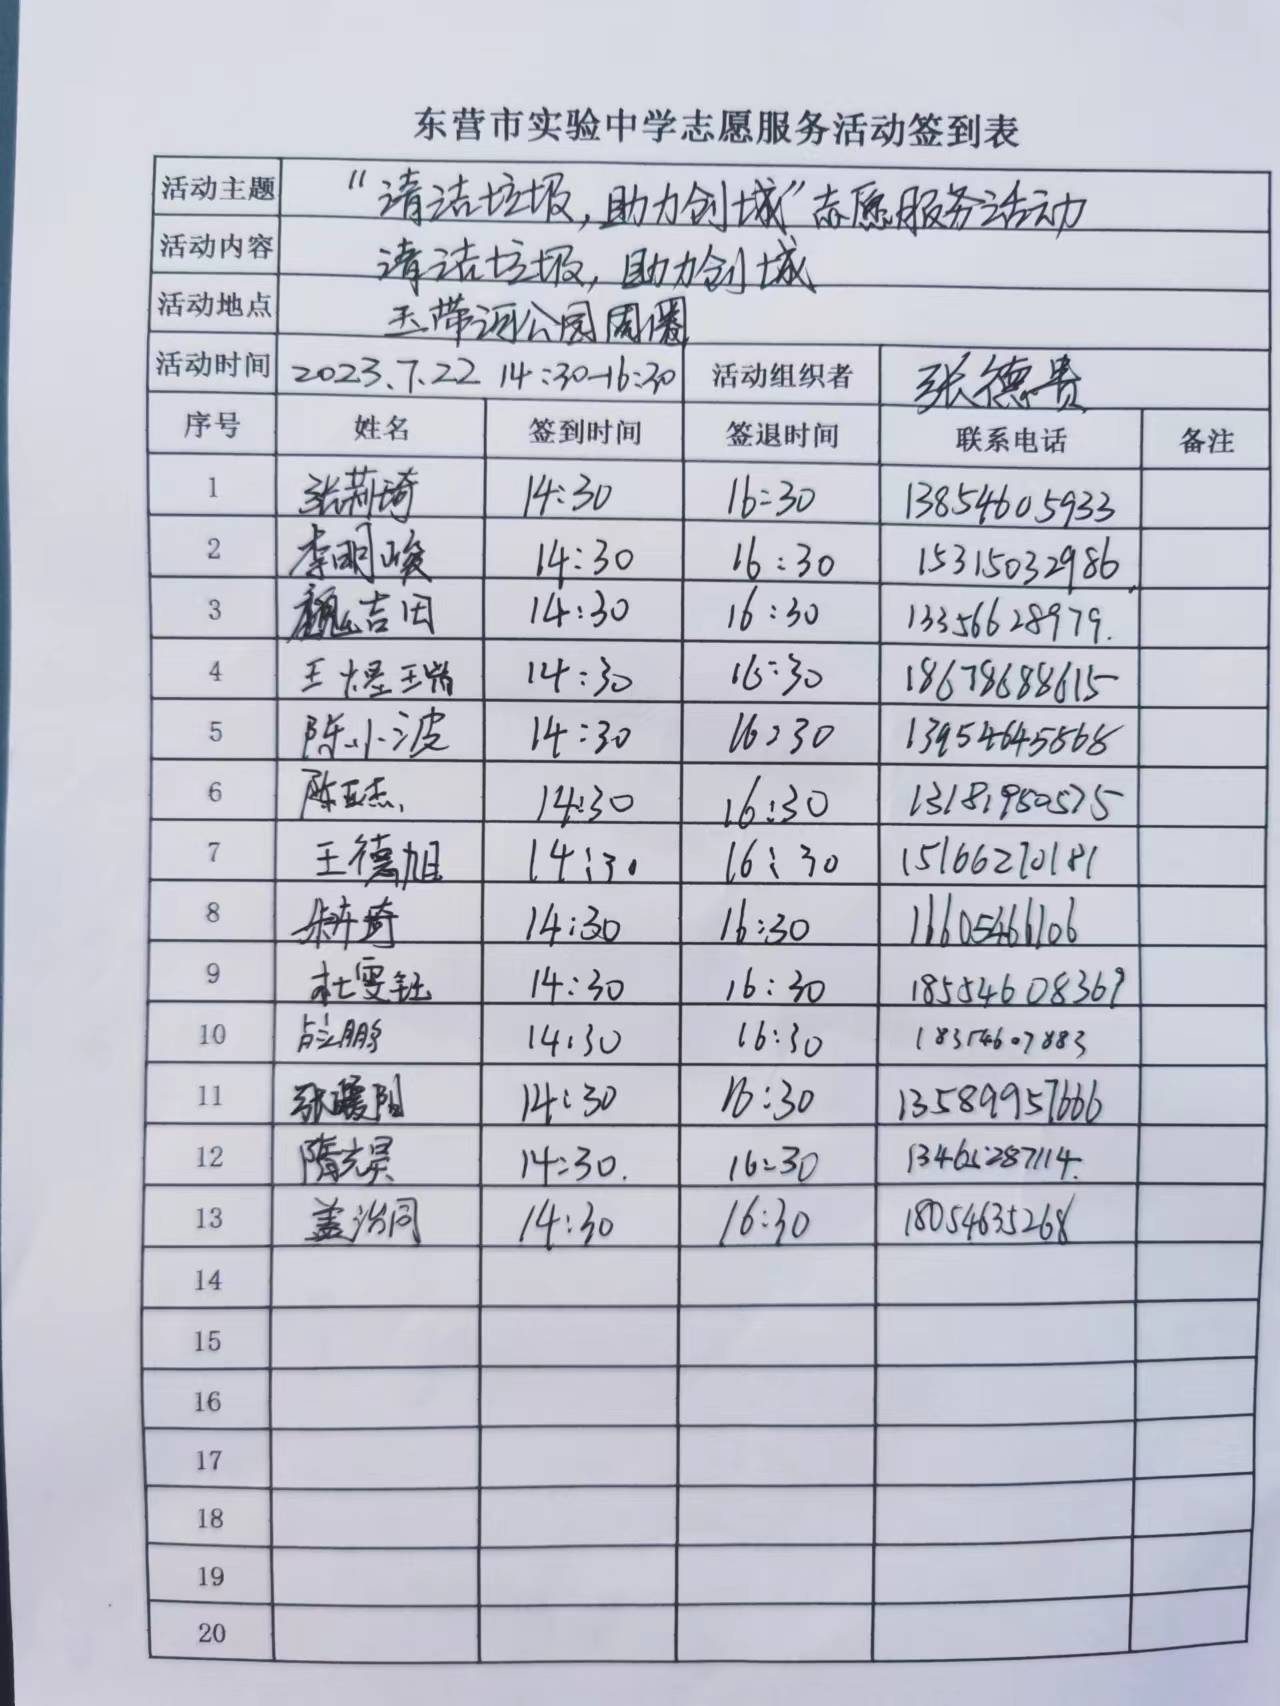 东营市实验中学志愿服务活动签到表
活动主题 “清洁垃圾,助力创城”志愿服务活动
活动内容 清洁垃圾,助力创城
活动地点 玉带河公园周围
活动时间 2023.7.22 14:30-16:30 活动组织者 张德贵
序号 姓名 签到时间 签退时间 联系电话 备注
1 张莉琦 14:30 16:30 13854605933
2 李明峻 14:30 16:30 15315032986
3 魏吉因 14:30 16:30 13356628979.
4 王 14:30 16:30 18678688615
5 陈小波 14:30 16:30 13954645568
6 陈亚杰 14:30 16:30 13181980575
7 王德旭 14:30 16:30 15166270181
8 14:30 16:30 16605466106
9 杜雯钰 14:30 16:30 18554608369
10 14:30 16:30 18354607883
11 张暖阳 14:30 16:30 13589957666
12 隋元昊 14:30. 16:30 13465287114.
13 盖治同 14:30 16:30 18054635268
14
15
16
17
18
19
20